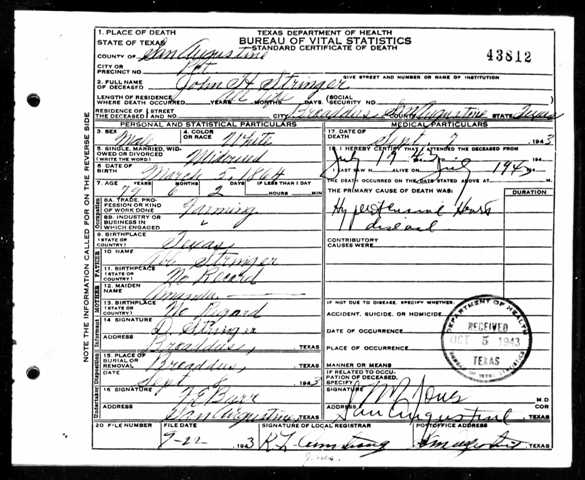 TEXAS DEPARTMENT OF HEALTH
BUREAU OF VITAL STATISTICS
STANDARD CERTIFICATE OF DEATH
43812
1. PLACE OF DEATH
STATE OF TEXAS
COUNTY OF San Augustine
CITY OR
PRECINCT NO.
GIVE STREET AND NUMBER OR NAME OF INSTITUTION
2. FULL NAME
OF DECEASED John H Stringer
LENGTH OF RESIDENCE
WHERE DEATH OCCURRED YEARS MONTHS DAYS (SOCIAL SECURITY NO.
RESIDENCE OF THE DECEASED STREET AND NO. CITY Broaddus, San Augustine STATE Texas
PERSONAL AND STATISTICAL PARTICULARS
3. SEX Male 4. COLOR OR RACE White
5. SINGLE, MARRIED, WIDOWED OR DIVORCED (WRITE THE WORD) Widowed
6. DATE OF BIRTH March 5, 1864
7. AGE 79 6 2 IF LESS THAN 1 DAY HOURS MIN
8A. TRADE, PROFESSION OR KIND OF WORK DONE Farming
8B. INDUSTRY OR BUSINESS IN WHICH ENGAGED
9. BIRTHPLACE (STATE OR COUNTRY) Texas
10. NAME Stringer
11. BIRTHPLACE (STATE OR COUNTRY) No Record
12. MAIDEN NAME
13. BIRTHPLACE (STATE OR COUNTRY)
14. SIGNATURE D. Stringer
ADDRESS Broaddus, TEXAS
15. PLACE OF BURIAL OR REMOVAL Broaddus, TEXAS
DATE Sept 1943
16. SIGNATURE
ADDRESS San Augustine TEXAS
MEDICAL PARTICULARS
17. DATE OF DEATH Sept 7 1943
18. I HEREBY CERTIFY THAT I ATTENDED THE DECEASED FROM
July
I LAST SAW ALIVE ON July 194
THE DEATH OCCURRED ON THE DATE STATED ABOVE AT M.
THE PRIMARY CAUSE OF DEATH WAS: DURATION
Hypertensive Heart
disease
CONTRIBUTORY
CAUSES WERE:
IF NOT DUE TO DISEASE, SPECIFY WHETHER:
ACCIDENT, SUICIDE, OR HOMICIDE
DATE OF OCCURRENCE
PLACE OF OCCURRENCE
MANNER OR MEANS
IF RELATED TO OCCUPATION OF DECEASED, SPECIFY
SIGNATURE M.D.
ADDRESS San Augustine TEXAS
DEPARTMENT OF HEALTH
RECEIVED
OCT 5 1943
TEXAS
BUREAU OF VITAL STATISTICS
20 FILE NUMBER FILE DATE SIGNATURE OF LOCAL REGISTRAR POSTOFFICE ADDRESS
9-22- 1943 TEXAS
NOTE INFORMATION CALLED FOR ON THE REVERSE SIDE